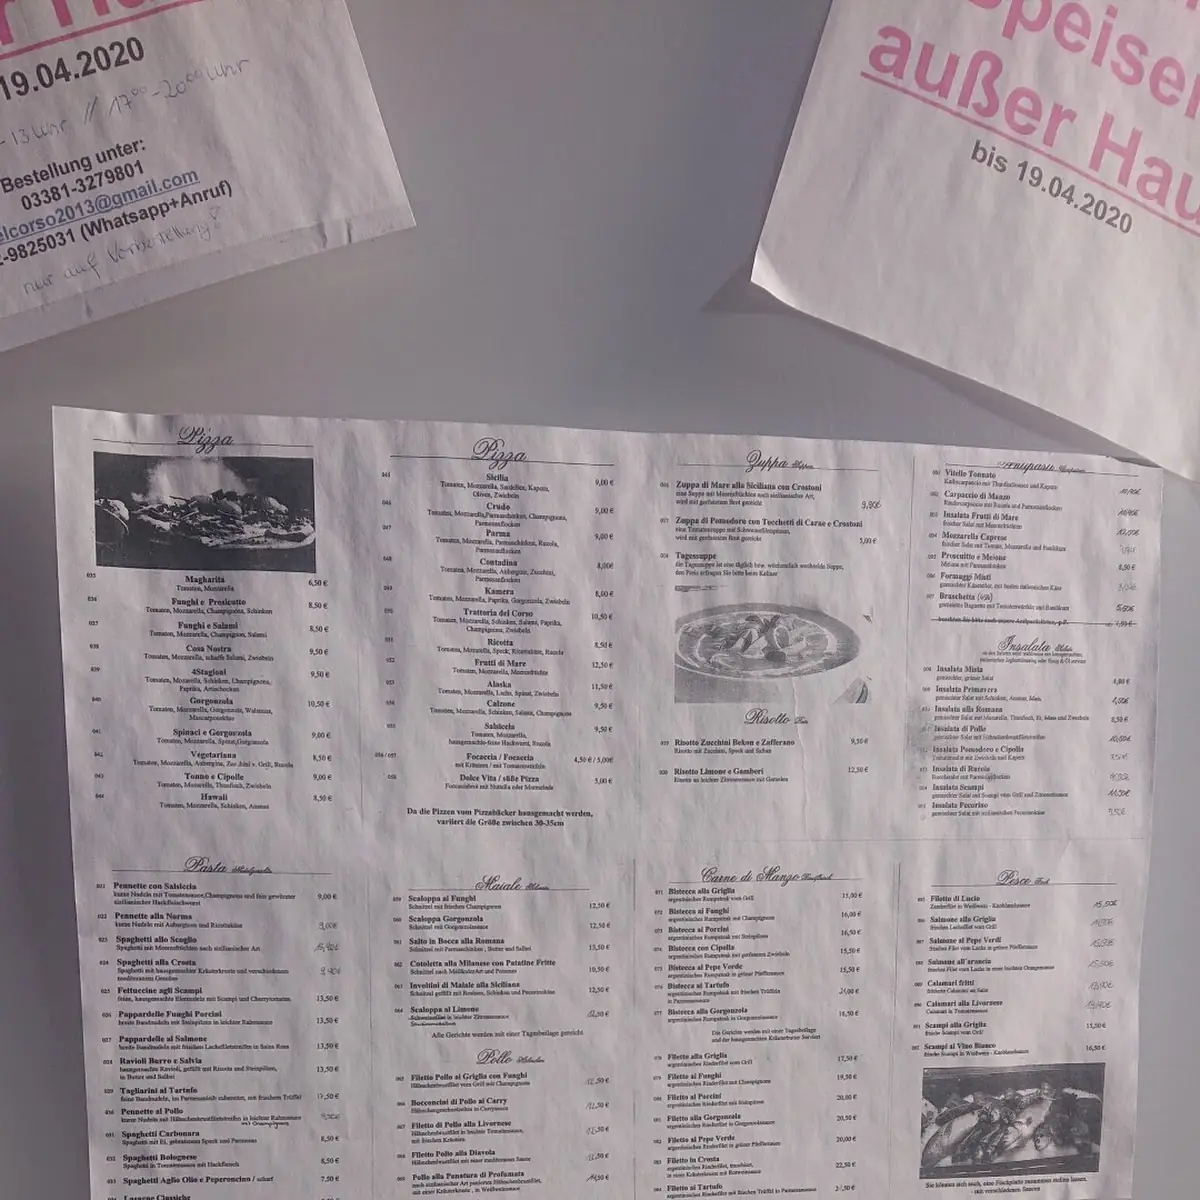 19.04.2020
13 Uhr // 17⁰⁰-20⁰⁰ Uhr
Bestellung unter:
03381-3279801
elcorso2013@gmail.com
-9825031 (Whatsapp+Anruf)
nur auf Vorbestellung!
Speisen
außer Hau
bis 19.04.2020
Pizza
035 Magharita 6,50 €
Tomaten, Mozzarella
036 Funghi e Prosciutto 8,50 €
Tomaten, Mozzarella, Champignons, Schinken
037 Funghi e Salami 8,50 €
Tomaten, Mozzarella, Champignon, Salami
038 Cosa Nostra 9,50 €
Tomaten, Mozzarella, scharfe Salami, Zwiebeln
039 4Stagioni 9,50 €
Tomaten, Mozarella, Schinken, Champignons,
Paprika, Artischocken
040 Gorgonzola 10,50 €
Tomaten, Mozzarella, Gorgonzola, Walnuss,
Mascarponekäse
041 Spinaci e Gorgonzola 9,00 €
Tomaten, Mozzarella, Spinat, Gorgonzola
042 Vegetariana 8,50 €
Tomaten, Mozzarella, Aubergine, Zucchini v. Grill, Rucola
043 Tonno e Cipolle 9,00 €
Tomaten, Mozarella, Thunfisch, Zwiebeln
044 Hawaii 8,50 €
Tomaten, Mozzarella, Schinken, Ananas
Pizza
045 Sicilia 9,00 €
Tomaten, Mozzarella, Sardellen, Kapern,
Oliven, Zwiebeln
046 Crudo 9,00 €
Tomaten, Mozzarella, Parmaschinken, Champignons,
Parmesanflocken
047 Parma 9,00 €
Tomaten, Mozzarella, Parmaschinken, Rucola,
Parmesanflocken
048 Contadina 8,00€
Tomaten, Mozzarella, Aubergine, Zucchini,
Parmesanflocken
049 Kamera 8,00 €
Tomaten, Mozzarella, Paprika, Gorgonzola, Zwiebeln
050 Trattoria del Corso 10,50 €
Tomaten, Mozzarella, Schinken, Salami, Paprika,
Champignons, Zwiebeln
051 Ricotta 8,50 €
Tomaten, Mozzarella, Speck, Ricottakäse, Rucola
052 Frutti di Mare 12,50 €
Tomaten, Mozzarella, Meeresfrüchte
053 Alaska 11,50 €
Tomaten, Mozzarella, Lachs, Spinat, Zwiebeln
054 Calzone 9,50 €
Tomaten, Mozzarella, Schinken, Salami, Champignons
055 Salsiccia 9,50 €
Tomaten, Mozzarella,
hausgemachte feine Hackwurst, Rucola
056 / 057 Focaccia / Focaccia 4,50 € / 5,00€
mit Kräutern / mit Tomatenwürfeln
058 Dolce Vita / süße Pizza 5,00 €
mit Nutella oder Marmelade
Da die Pizzen vom Pizzabäcker hausgemacht werden,
variiert die Größe zwischen 30-35cm
Zuppa Suppen
Zuppa di Mare alla Siciliana con Crostoni
eine Suppe mit Meeresfrüchten nach sizilianischer Art,
wird mit geröstetem Brot gereicht 9,90€
Zuppa di Pomodoro con Tocchetti di Carne e Crostoni
eine Tomatensuppe mit Schweinefiletspitzen,
wird mit geröstetem Brot gereicht 5,00 €
Tagessuppe
die Tagessuppe ist eine täglich bzw. wöchentlich wechselnde Suppe,
den Preis erfragen Sie bitte beim Kellner
Risotto Reis
Risotto Zucchini Bekon e Zafferano 9,50 €
Risotto mit Zucchini, Speck und Safran
Risotto Limone e Gamberi 12,50 €
Risotto an leichter Zitronensauce mit Garnelen
Vitello Tonnato
Kalbscarpaccio mit Thunfischsauce und Kapern
Carpaccio di Manzo
Rindercarpaccio mit Rucola und Parmesanflocken
Insalata Frutti di Mare
frischer Salat mit Meeresfrüchten
Mozzarella Caprese
frischer Salat mit Tomate, Mozzarella und Basilikum
Prosciutto e Melone 8,50 €
Melone mit Parmaschinken
Formaggi Misti
gemischter Käseteller, mit besten italienischen Käse
Bruschetta (4St) 5,60€
geröstetes Baguette mit Tomatenwürfeln und Basilikum
Insalata Salate
Insalata Mista
gemischter, grüner Salat 4,80 €
Insalata Primavera
gemischter Salat mit Schinken, Ananas, Mais
Insalata alla Romana 8,50 €
gemischter Salat mit Mozarella, Thunfisch, Ei, Mais und Zwiebeln
Insalata di Pollo 10,50€
gemischter Salat mit Hähnchenbrustfiletstreifen
Insalata Pomodoro e Cipolla
Tomatensalat mit Zwiebeln und Kapern
Insalata di Rucola
Rucolasalat mit Parmesanflocken
Insalata Scampi 11,50€
gemischter Salat mit Scampi vom Grill und Zitronensauce
Insalata Pecorino
gemischter Salat mit sizilianischem Pecorinokäse
Pasta
021 Pennette con Salsiccia
kurze Nudeln mit Tomatensauce, Champignons und fein gewürzter 9,00 €
sizilianischer Hackfleischwurst
022 Pennette alla Norma
kurze Nudeln mit Auberginen und Ricottakäse
023 Spaghetti allo Scoglio
Spaghetti mit Meeresfrüchten nach sizilianischer Art
024 Spaghetti alla Crosta
Spaghetti mit hausgemachter Kräuterkruste und verschiedenem
mediterranem Gemüse
025 Fettuccine agli Scampi
feine, hausgemachte Eiernudeln mit Scampi und Cherrytomaten 13,50 €
026 Pappardelle Funghi Porcini
breite Bandnudeln mit Steinpilzen in leichter Rahmsauce 13,50 €
027 Pappardelle al Salmone
breite Bandnudeln mit frischen Lachsfiletstreifen in Salsa Rosa 13,50 €
028 Ravioli Burro e Salvia
hausgemachte Ravioli, gefüllt mit Ricotta und Steinpilzen, 13,50 €
in Butter und Salbei
029 Tagliarini al Tartufo
feine Bandnudeln, im Parmesanlaib zubereitet, mit frischem Trüffel
030 Pennette al Pollo
kurze Nudeln mit Hähnchenbrustfiletstreifen in leichter Rahmsauce
mit Champignons
031 Spaghetti Carbonara
Spaghetti mit Ei, gebratenem Speck und Parmesan 8,50 €
032 Spaghetti Bolognese
Spaghetti in Tomatensauce mit Hackfleisch 8,50 €
033 Spaghetti Aglio Olio e Peperoncino / scharf 7,50 €
Lasagne Classiche
Maiale Schwein
059 Scaloppa ai Funghi
Schnitzel mit frischen Champignons 12,50 €
060 Scaloppa Gorgonzola
Schnitzel mit Gorgonzolasauce 12,50 €
061 Salto in Bocca alla Romana
Schnitzel mit Parmaschinken, Butter und Salbei 13,50 €
062 Cotoletta alla Milanese con Patatine Fritte
Schnitzel nach Mailänder Art und Pommes 10,50 €
063 Involtini di Maiale alla Siciliana
Schnitzel gefüllt mit Rosinen, Schinken und Pecorinokäse 12,50 €
064 Scaloppa al Limone
Schweinefilet in leichter Zitronensauce
Alle Gerichte werden mit einer Tagesbeilage gereicht
Pollo Hähnchen
Filetto Pollo ai Griglia con Funghi
Hähnchenbrustfilet vom Grill mit Champignons
Bocconcini di Pollo al Carry
Hähnchengeschnetzeltes in Currysauce
Filetto di Pollo alla Livornese
Hähnchenbrustfilet in leichter Tomatensauce,
mit frischen Kräutern
Filetto Pollo alla Diavola
Hähnchenbrustfilet mit einer mediterranen Sauce
Pollo alla Panatura di Profumata
nach sizilianischer Art paniertes Hähnchenbrustfilet,
mit einer Kräuterkruste, in Weißweinsauce
Carne di Manzo Rindfleisch
071 Bistecca alla Griglia
argentinisches Rumpsteak vom Grill 15,00 €
072 Bistecca ai Funghi
argentinisches Rumpsteak mit Champignons 16,00 €
073 Bistecca ai Porcini
argentinisches Rumpsteak mit Steinpilzen 16,50 €
074 Bistecca con Cipolla
argentinisches Rumpsteak mit gerösteten Zwiebeln 15,50 €
075 Bistecca al Pepe Verde
argentinisches Rumpsteak in grüner Pfeffersauce 15,50 €
076 Bistecca al Tartufo
argentinisches Rumpsteak mit frischen Trüffeln
in Parmesansauce
077 Bistecca alla Gorgonzola
argentinisches Rumpsteak in Gorgonzolasauce 16,50 €
Die Gerichte werden mit einer Tagesbeilage
und der hausgemachten Kräuterbutter Serviert
078 Filetto alla Griglia
argentinisches Rinderfilet vom Grill 17,50 €
079 Filetto ai Funghi
argentinisches Rinderfilet mit Champignons 19,50 €
080 Filetto ai Porcini
argentinisches Rinderfilet mit Steinpilzen 20,00 €
081 Filetto alla Gorgonzola
argentinisches Rinderfilet in Gorgonzolasauce 20,50 €
082 Filetto al Pepe Verde
argentinisches Rinderfilet in grüner Pfeffersauce 20,00 €
083 Filetto in Crosta
argentinisches Rinderfilet, mariniert,
in einer Kräuterkruste mit Rotweinsauce 22,50 €
Filetto al Tartufo
argentinisches Rinderfilet mit frischen Trüffeln in Parmesansauce
Pesce Fisch
Filetto di Lucio
Zanderfilet in Weißwein - Knoblauchsauce
Salmone alla Griglia
frisches Lachsfilet vom Grill
Salmone al Pepe Verdi
frisches Filet vom Lachs in grüner Pfeffersauce
Salmone all'arancia
frisches Filet vom Lachs in einer leichten Orangensauce
Calamari fritti
frittierte Calamari an Salat
Calamari alla Livornese
Calamari in Tomatensauce
Scampi alla Griglia 15,50 €
frische Scampi vom Grill
Scampi al Vino Bianco 16,50 €
frische Scampi in Weißwein - Knoblauchsauce
Sie können sich auch, eine Fischplatte zusammen stellen lassen,
- mit verschiedenen Saucen